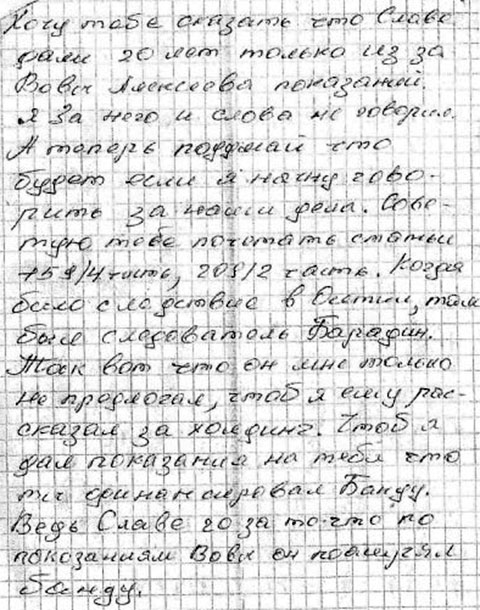 Хочу тебе сказать что Славе
дали 20 лет только из за
Вовы Алексеева показаний.
Я за него и слова не говорил.
А теперь подумай что
будет если я начну гово-
рить за наши дела. Сове-
тую тебе почитать статьи
159/4 часть, 209/2 часть. Когда
было следствие в Осетии, там
был следователь Барадин.
Так вот что он мне только
не предлогал, чтоб я ему рас-
сказал за холдинг. Чтоб я
дал показания на тебя что
ты финансировал Банду.
Ведь Славе 20 за то что по
показаниям Вовы он
банду.